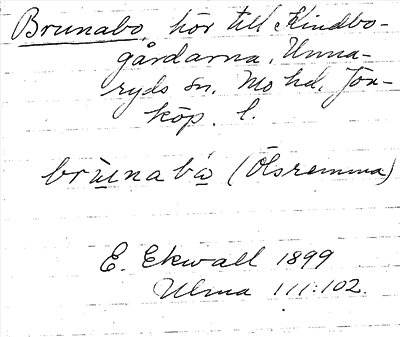 Brunabo, hör till Kindbo-
gårdarna, Unna-
ryds sn. Mo hd. Jön-
köp. l.
brùnabò (Ölsremma)
E. Ekwall 1899
Ulma 111:102.